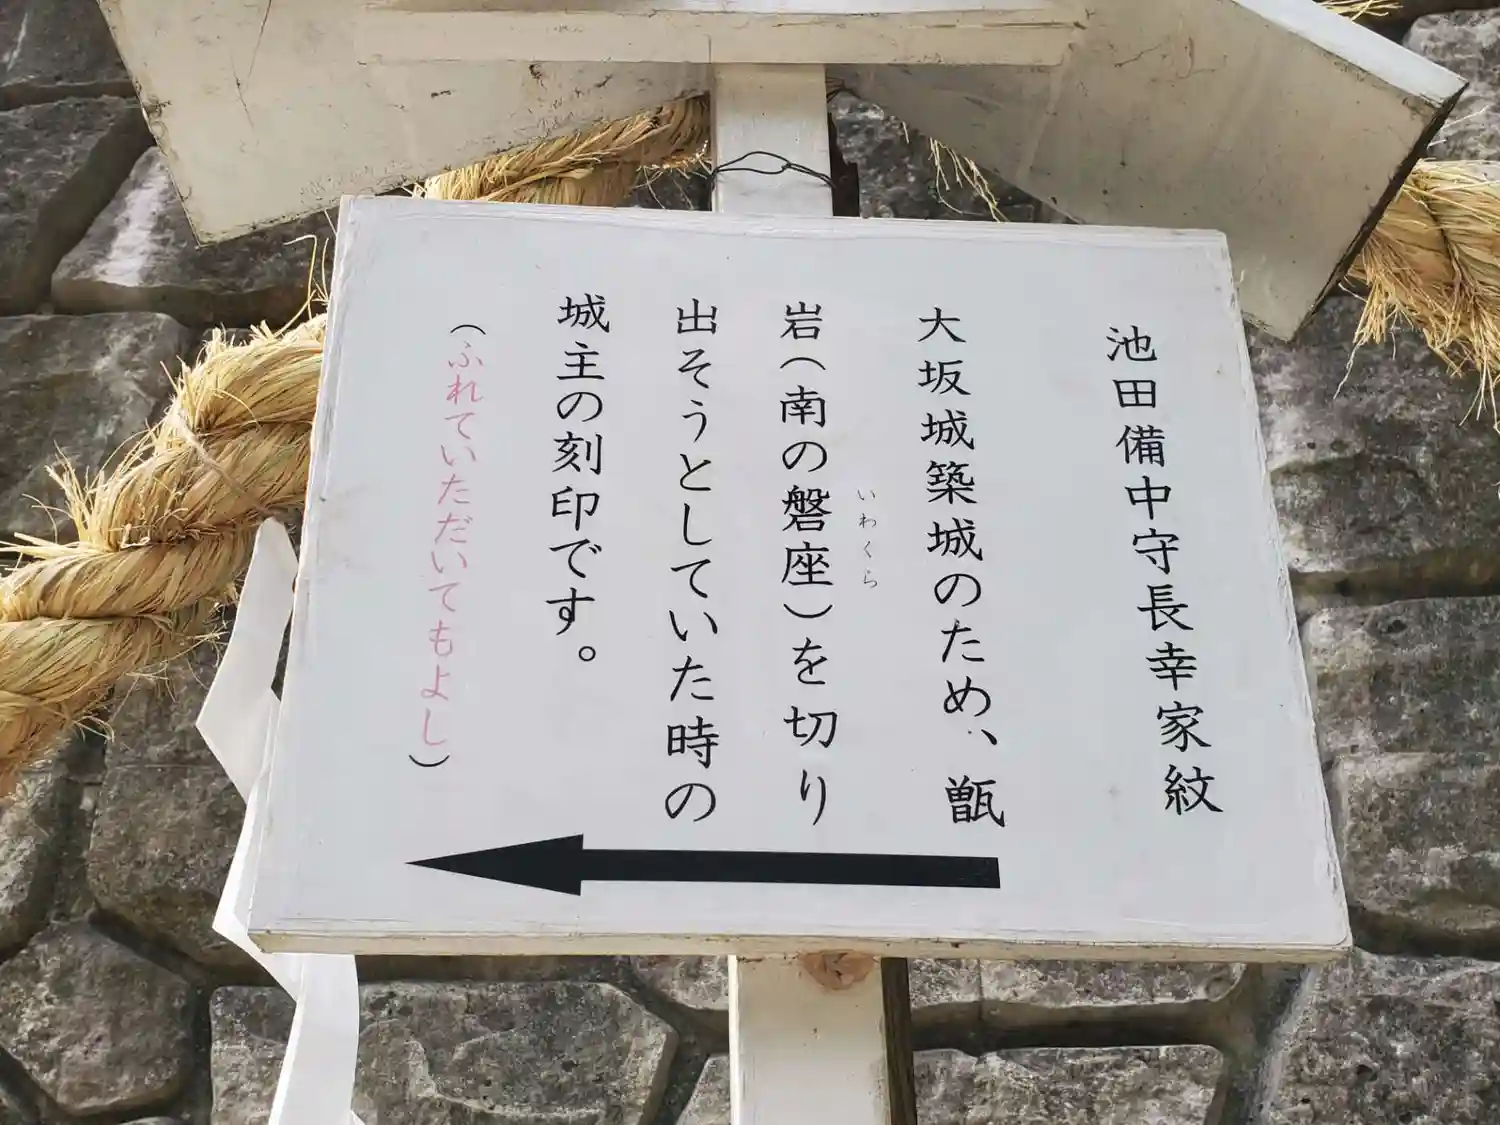 池田備中守長幸家紋
大坂城築城のため、甑
岩(南の磐座)を切り
いわくら
出そうとしていた時の
城主の刻印です。
(ふれていただいてもよし)